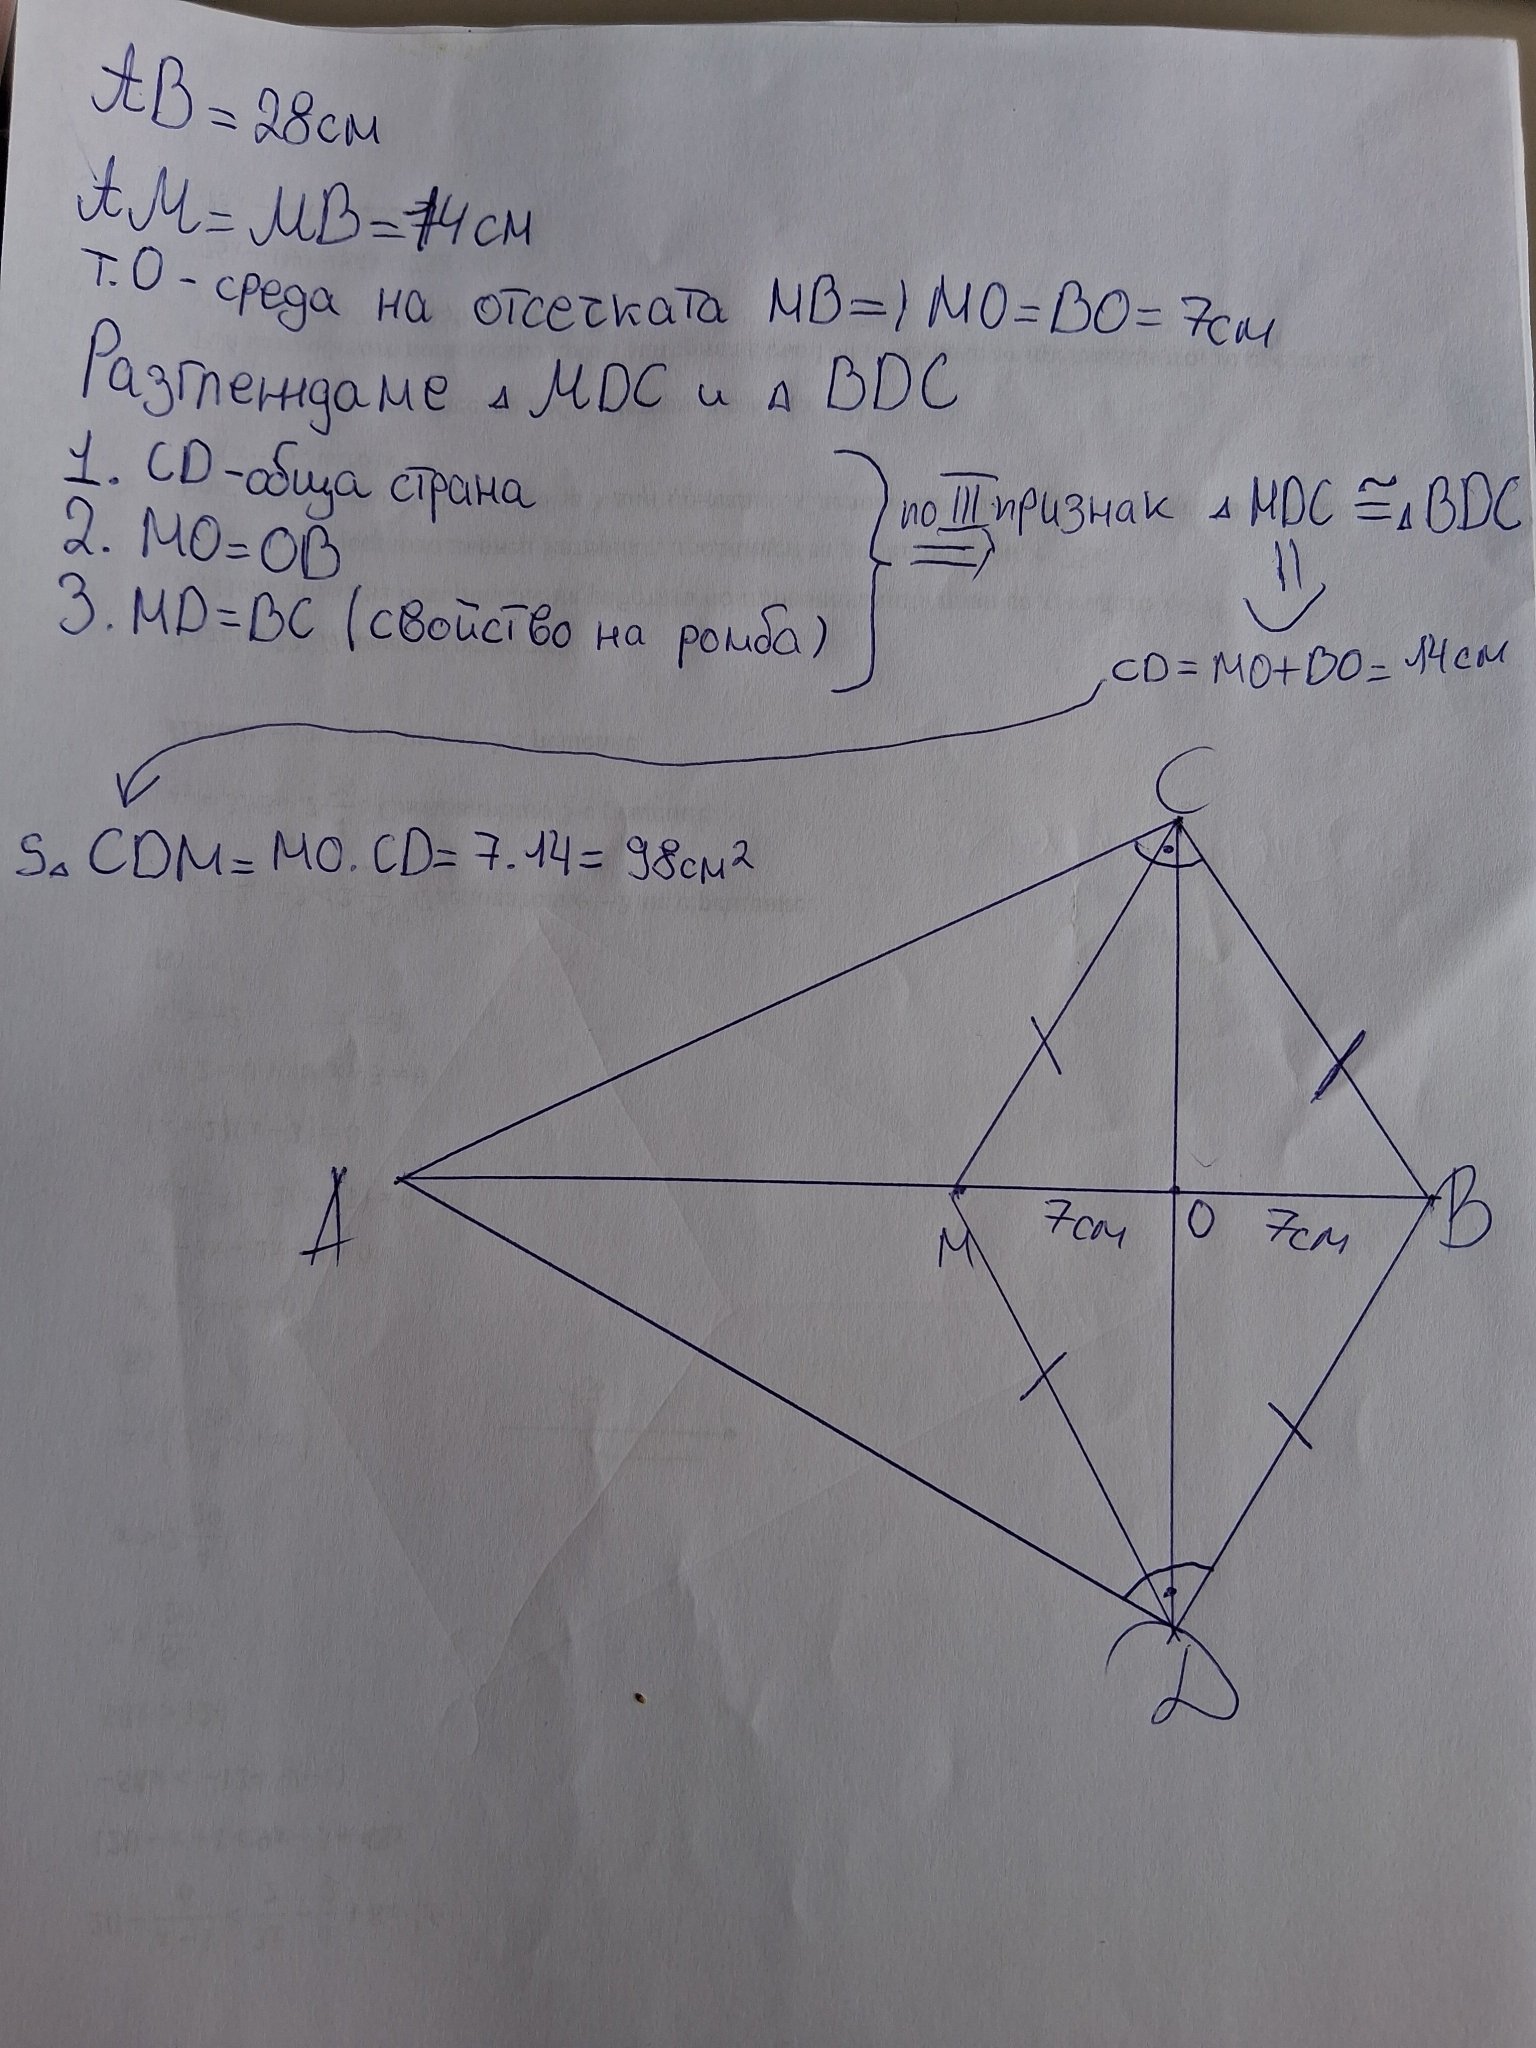 AB = 28см
AM = MB = 14см
т.О - среда на отсечката MB => MO = BO = 7см
Разглеждаме △ MDC и △ BDC
1. CD - обща страна
2. MO = OB
3. MD = BC (свойство на ромба)
по III признак △ MDC ≅ △ BDC
=>
CD = MO + BO = 14см
S△ CDM = MO . CD = 7 . 14 = 98см²
C
A
M
7см
O
7см
B
D